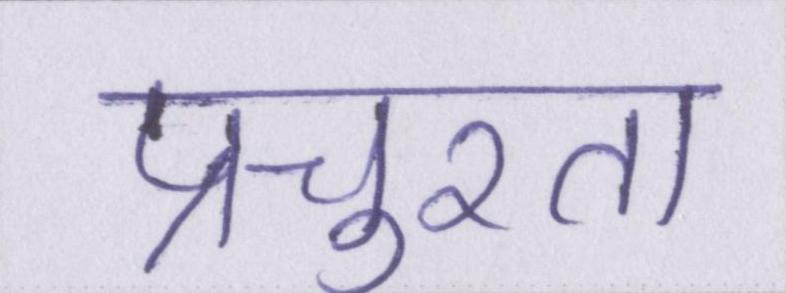 प्रचुरता